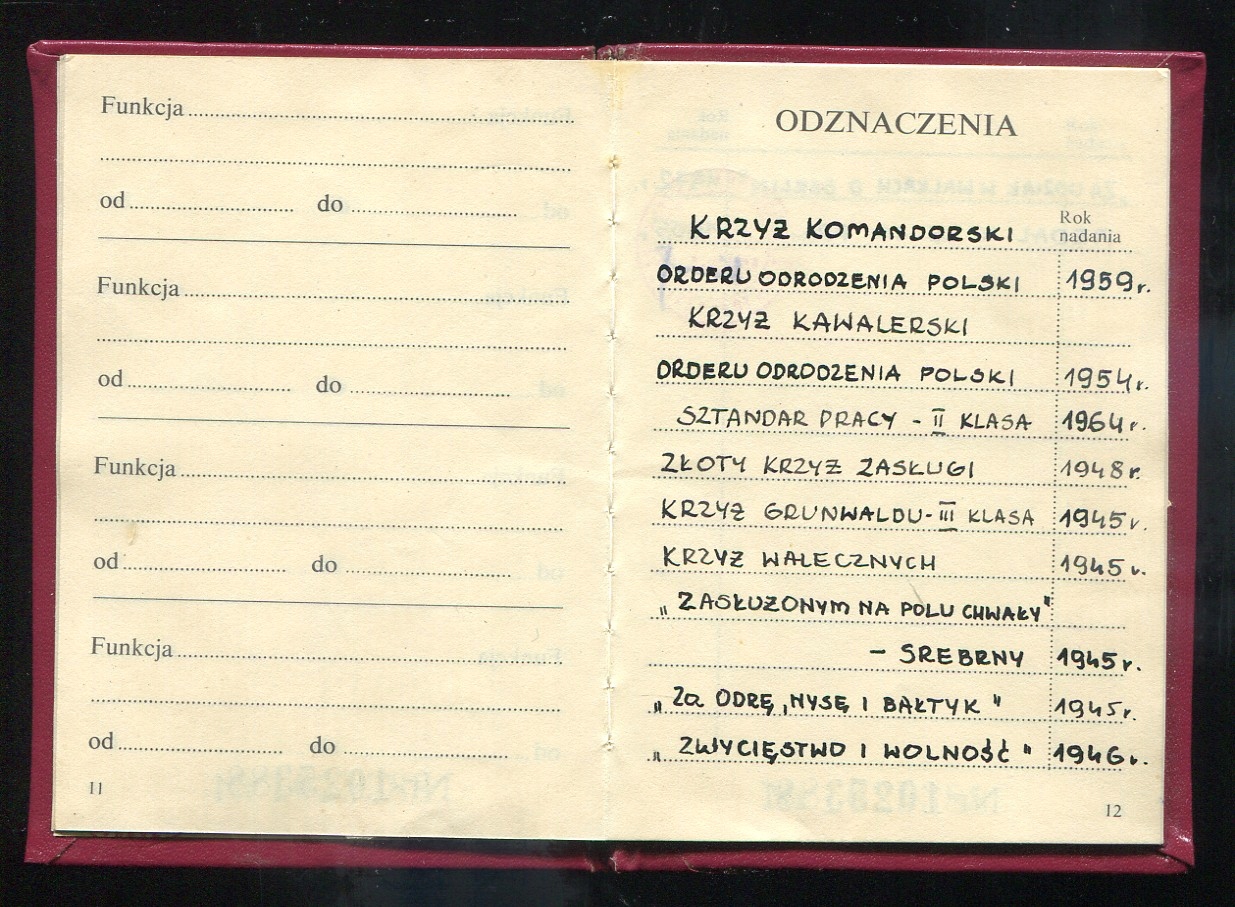 Funkcja
od do
Funkcja
od do
Funkcja
od do
Funkcja
od do
11
ODZNACZENIA
Rok
nadania
KRZYŻ KOMANDORSKI
ORDERU ODRODZENIA POLSKI 1959r.
KRZYŻ KAWALERSKI
ORDERU ODRODZENIA POLSKI 1954r.
SZTANDAR PRACY - II KLASA 1964r.
ZŁOTY KRZYŻ ZASŁUGI 1948r.
KRZYŻ GRUNWALDU - III KLASA 1945r.
KRZYŻ WALECZNYCH 1945r.
„ZASŁUŻONYM NA POLU CHWAŁY"
- SREBRNY 1945r.
„Za ODRĘ, NYSĘ I BAŁTYK" 1945r.
„ZWYCIĘSTWO I WOLNOŚĆ" 1946r.
12